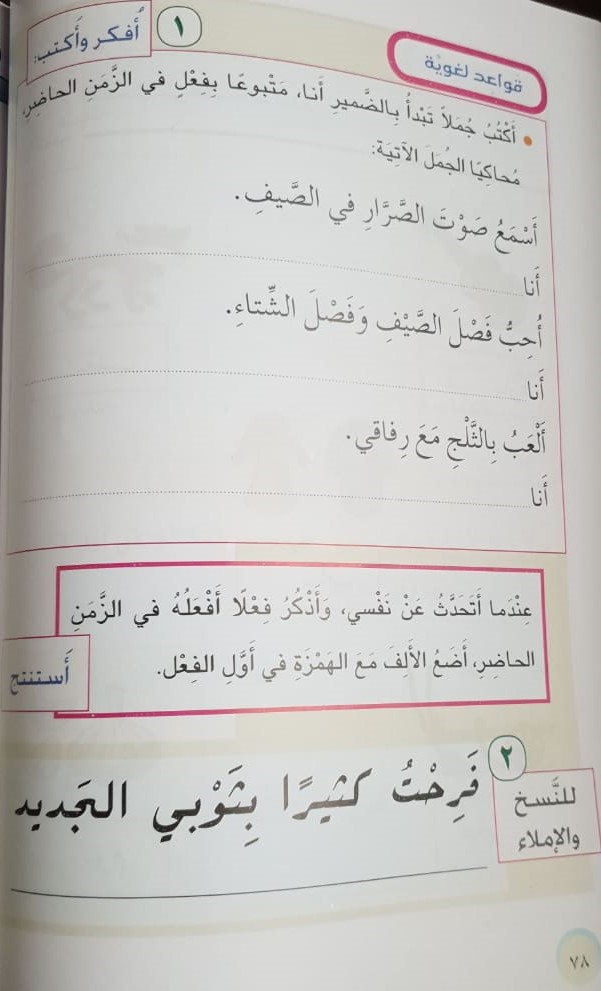 قواعد لغويّة
١ أُفكر وأَكتب:
• أَكْتُبُ جُمَلاً تَبْدأُ بِالضَّميرِ أَنا، مَتْبوعًا بِفِعْلٍ في الزَّمَنِ الحاضِرِ،
مُحاكِيًا الجُمَلَ الآتِيَةَ:
أَسْمَعُ صَوْتَ الصَّرَّارِ في الصَّيفِ.
أَنا ..............................
أُحِبُّ فَصْلَ الصَّيْفِ وَفَصْلَ الشِّتاءِ.
أَنا ..............................
أَلْعَبُ بِالثَّلْجِ مَعَ رِفاقي.
أَنا ..............................
عِنْدَما أَتَحَدَّثُ عَنْ نَفْسي، وَأَذْكُرُ فِعْلًا أَفْعَلُهُ في الزَّمَنِ
الحاضِرِ، أَضَعُ الأَلِفَ مَعَ الهَمْزَةِ في أَوَّلِ الفِعْل.
أَستنتج
٢
للنَّسخ
والإملاء
فَرِحْتُ كثيرًا بِثَوْبي الجَديد
٧٨